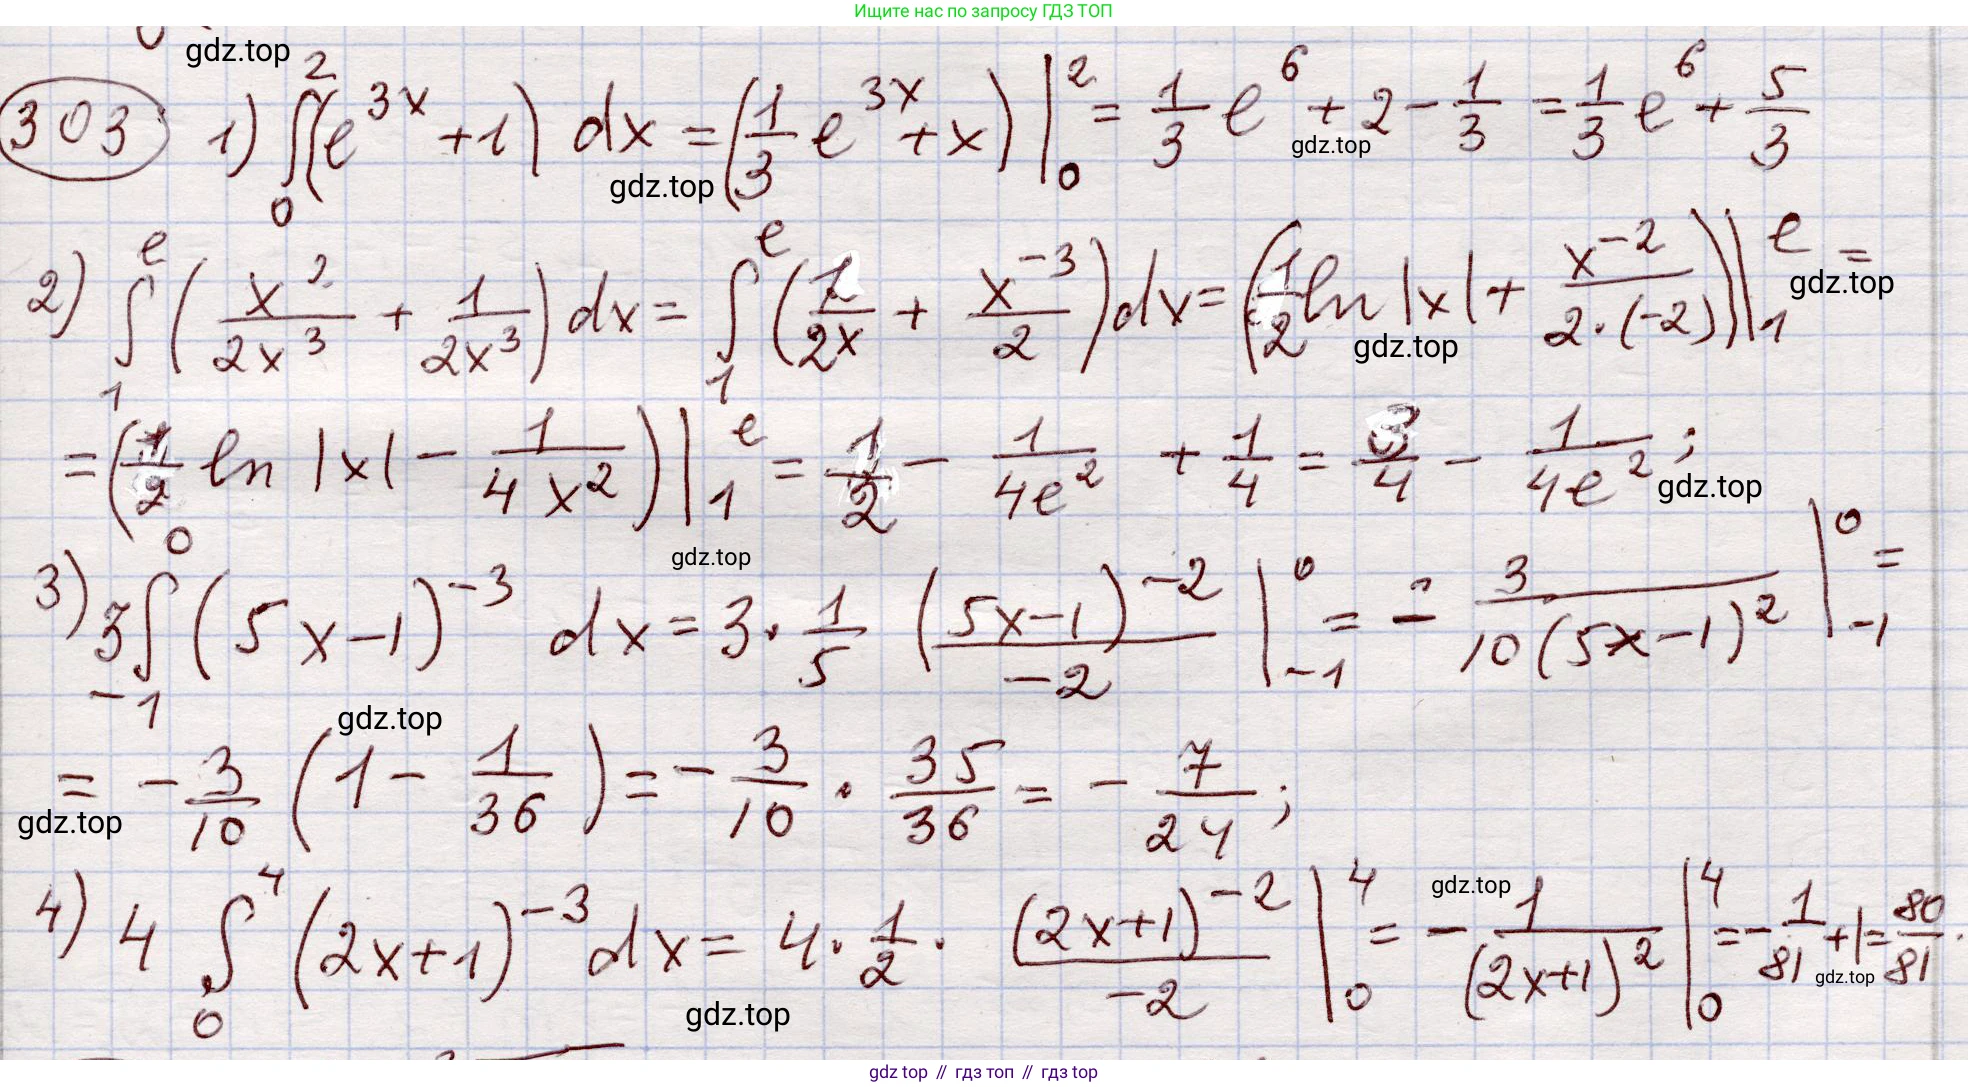 Ищите нас по запросу ГДЗ ТОП
gdz.top
303 1) ∫₀² (e^{3x} + 1) dx = (1/3 e^{3x} + x) |₀² = 1/3 e^6 + 2 - 1/3 = 1/3 e^6 + 5/3
gdz.top
gdz.top
2) ∫₁^e (x²/2x³ + 1/2x³) dx = ∫₁^e (1/2x + x^{-3}/2) dx = (1/2 ln |x| + x^{-2}/2·(-2)) |₁^e =
gdz.top
gdz.top
= (1/2 ln |x| - 1/4x²) |₁^e = 1/2 - 1/4e² + 1/4 = 3/4 - 1/4e²;
gdz.top
gdz.top
3) 3 ∫₋₁⁰ (5x-1)^{-3} dx = 3 · 1/5 (5x-1)^{-2}/-2 |₋₁⁰ = - 3/10(5x-1)² |₋₁⁰ =
gdz.top
= - 3/10 (1 - 1/36) = - 3/10 · 35/36 = - 7/24;
gdz.top
4) 4 ∫₀⁴ (2x+1)^{-3} dx = 4 · 1/2 · (2x+1)^{-2}/-2 |₀⁴ = - 1/(2x+1)² |₀⁴ = - 1/81 + 1 = 80/81.
gdz.top
gdz.top
gdz.top
gdz top // гдз топ // gdz top